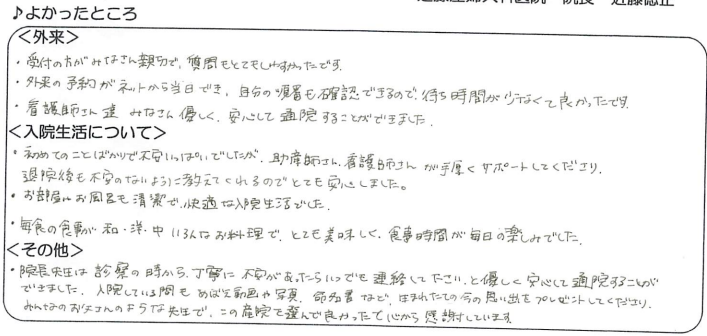 近藤産婦人科医院 院長 近藤徳正
♪よかったところ
<外来>
・受付の方がみなさん親切で、質問もとてもしやすかったです。
・外来の予約がネットから当日でき、自分の順番も確認できるので、待ち時間が少なくて良かったです。
・看護師さん達 みなさん優しく、安心して通院することができました。
<入院生活について>
・初めてのことばかりで不安いっぱいでしたが、助産師さん、看護師さんが手厚くサポートしてくださり、
退院後も不安のないように教えてくれるのでとても安心しました。
・お部屋もお風呂も清潔で、快適な入院生活でした。
・毎食の食事が和・洋・中 いろんなお料理で、とても美味しく、食事時間が毎日の楽しみでした。
<その他>
・院長先生は診察の時から、丁寧に不安があったらいつでも連絡して下さい、と優しく安心して通院することが
できました。入院している間も めばえ動画や写真、命名書など、生まれたての今の思い出をプレゼントしてくださり、
みんなのお父さんのような先生で、この産院を選んで良かったて心から感謝しています。